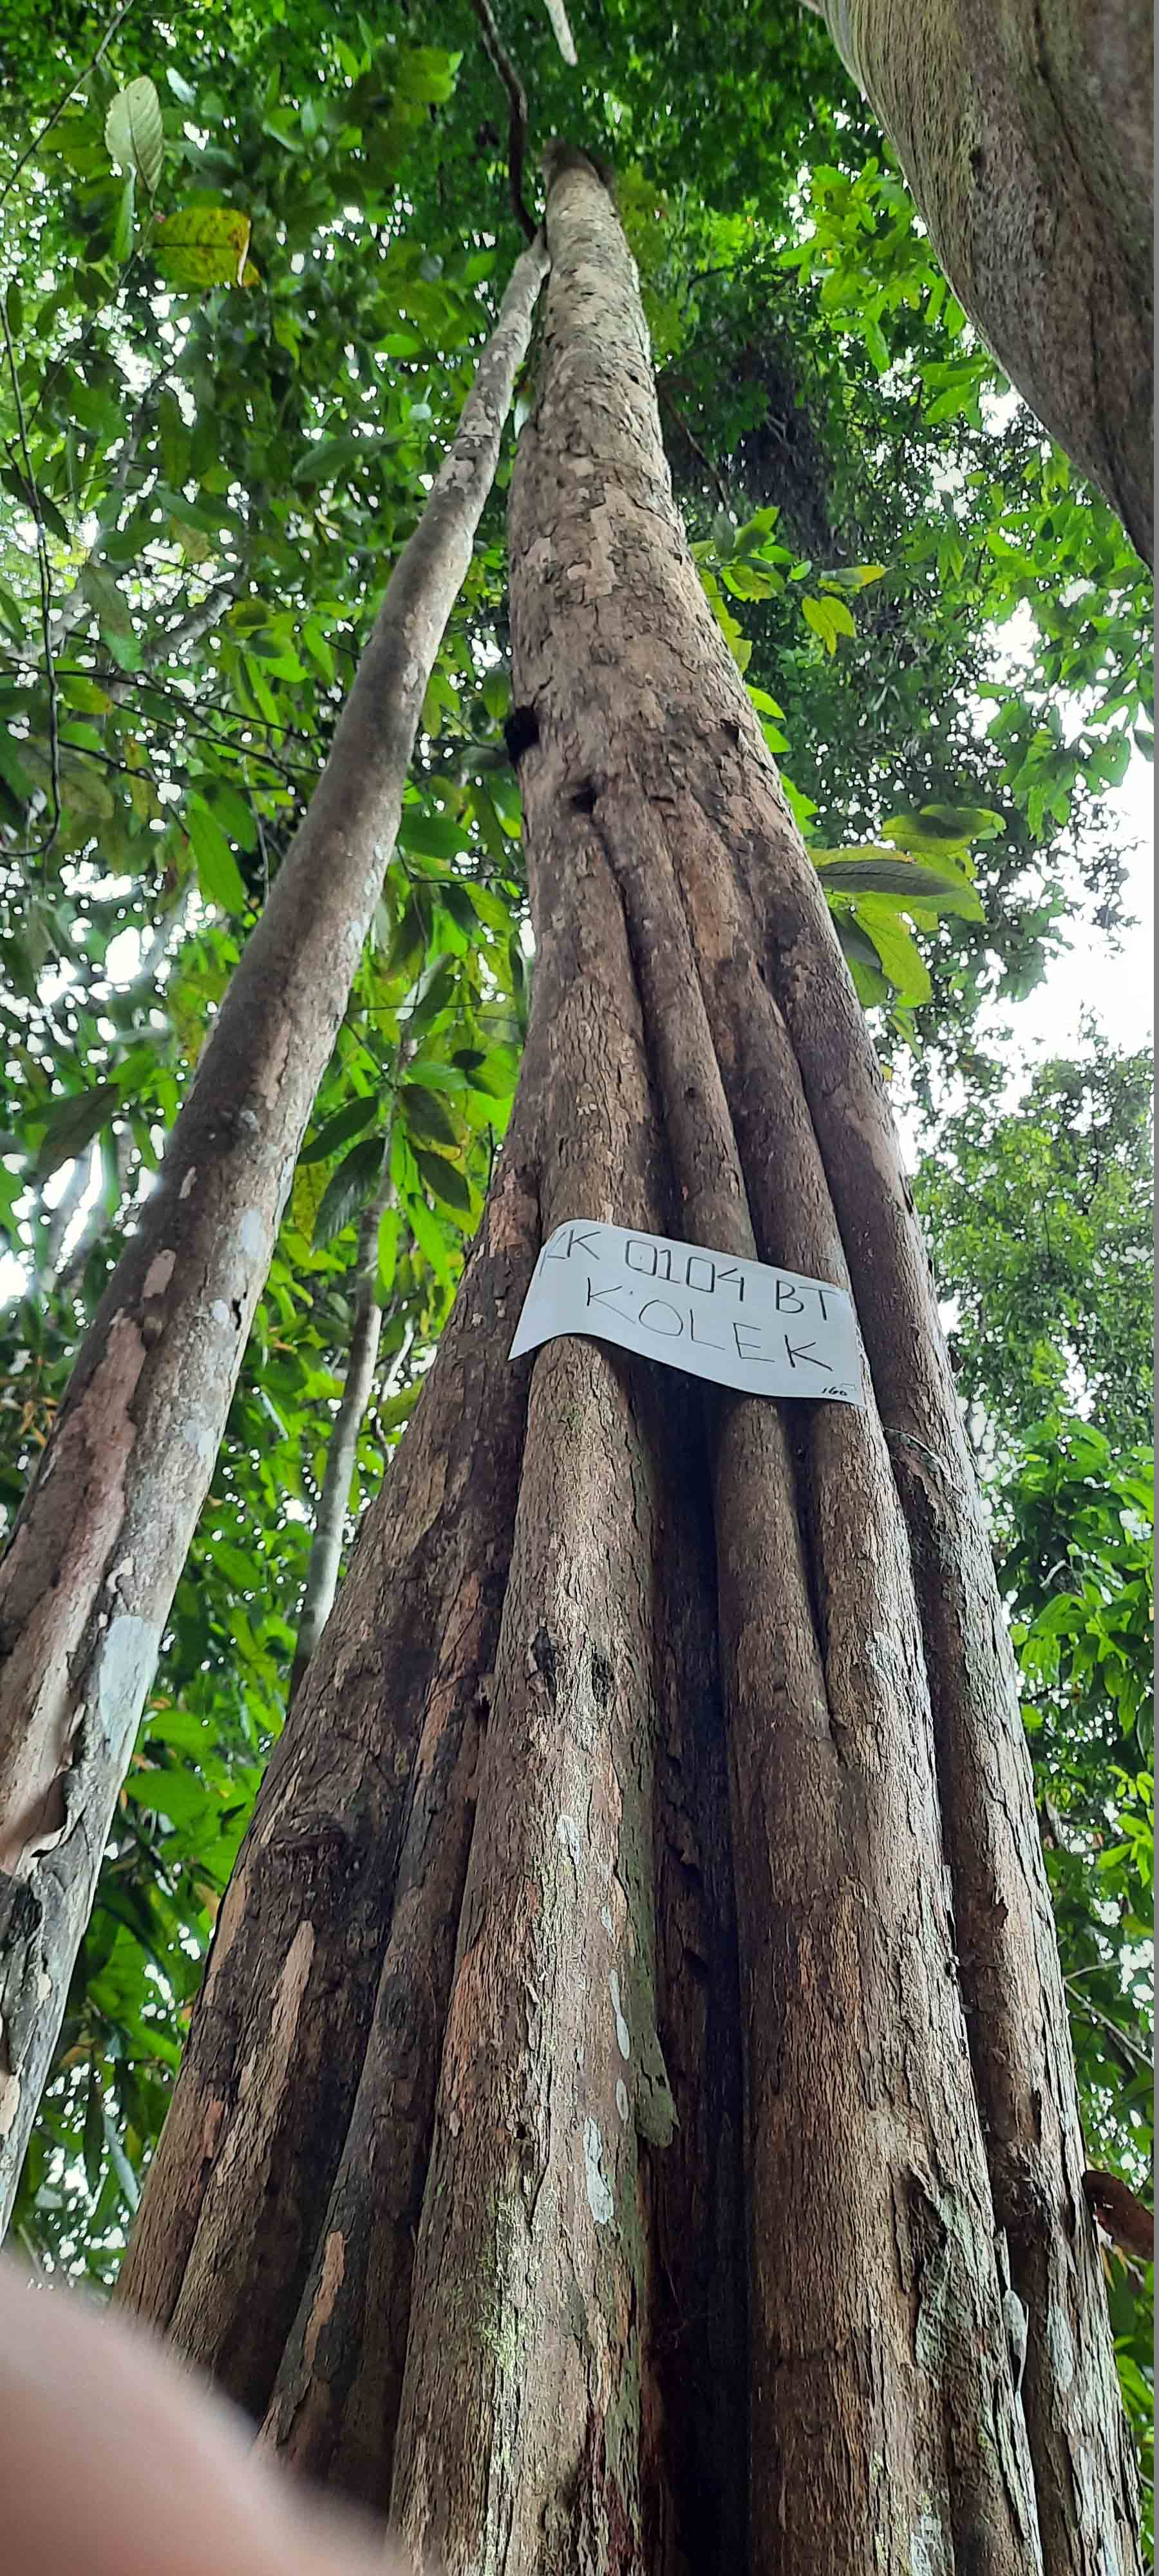 AK 0104 BT
KOLEK
160